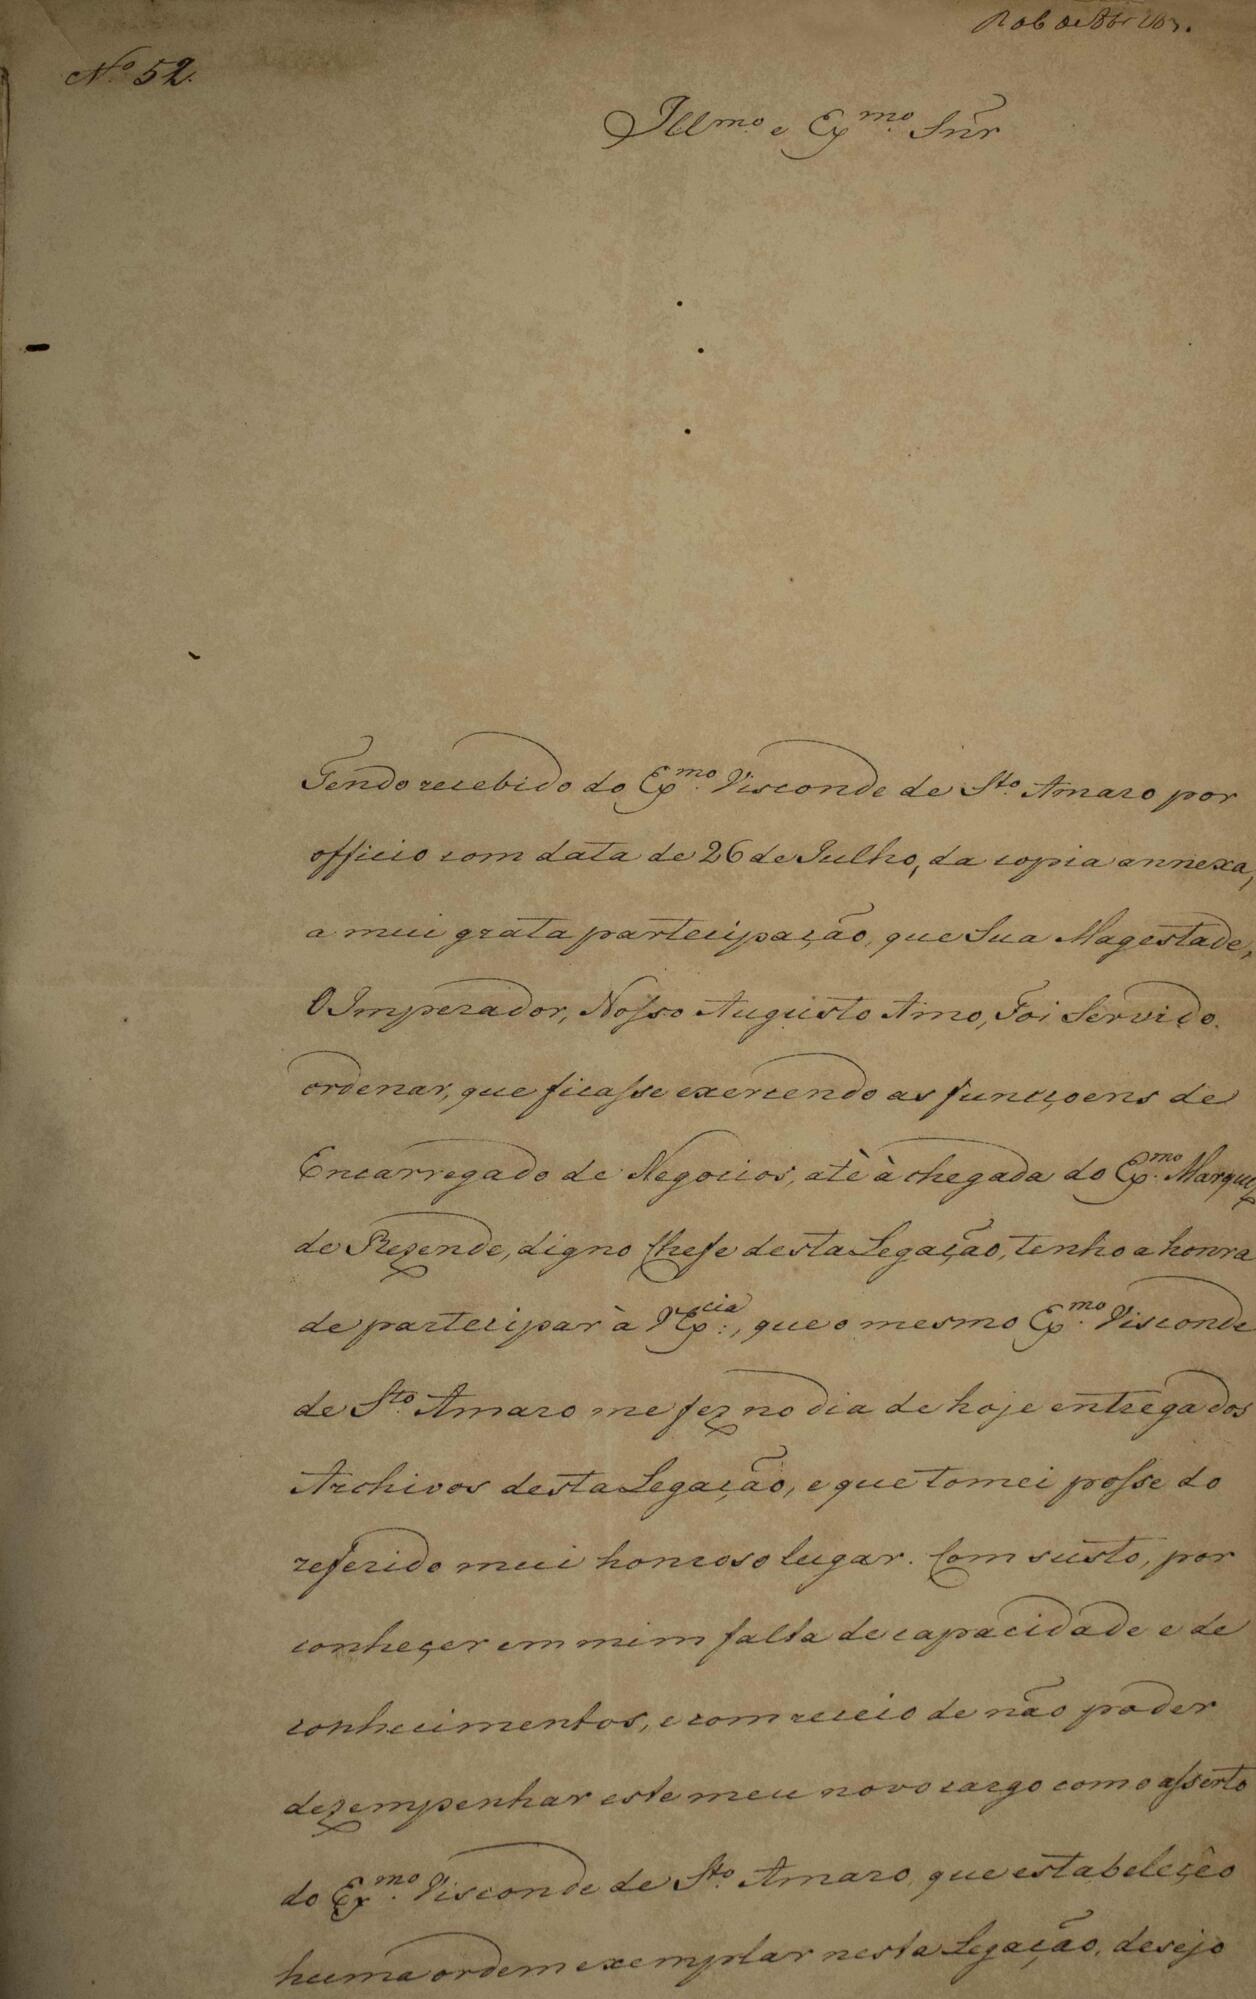 Nº 52.
Illmo. e Exmo. Snr
Tendo recebido do Exmo. Visconde de Sto. Amaro por
officio com data de 26 de Julho, da copia annexa,
a mui grata partecipação, que Sua Magestade,
O Imperador, Nosso Augusto Amo, Foi Servido
ordenar, que ficasse exercendo as funcçoens de
Encarregado de Negocios, atè à chegada do Exmo. Marquez
de Rezende, digno Chefe desta Legação, tenho a honra
de partecipar à VExcia:, que o mesmo Exmo. Visconde
de Sto. Amaro me fez no dia de hoje entrega dos
Archivos desta Legação, e que tomei posse do
referido mui honroso lugar. Com susto, por
conheçer em mim falta de capacidade e de
conhecimentos, e com receio de não poder
dezempenhar este meu novo cargo com o asserto
do Exmo. Visconde de Sto. Amaro, que estabeleçêo
huma ordem exemplar nesta Legação, desejo